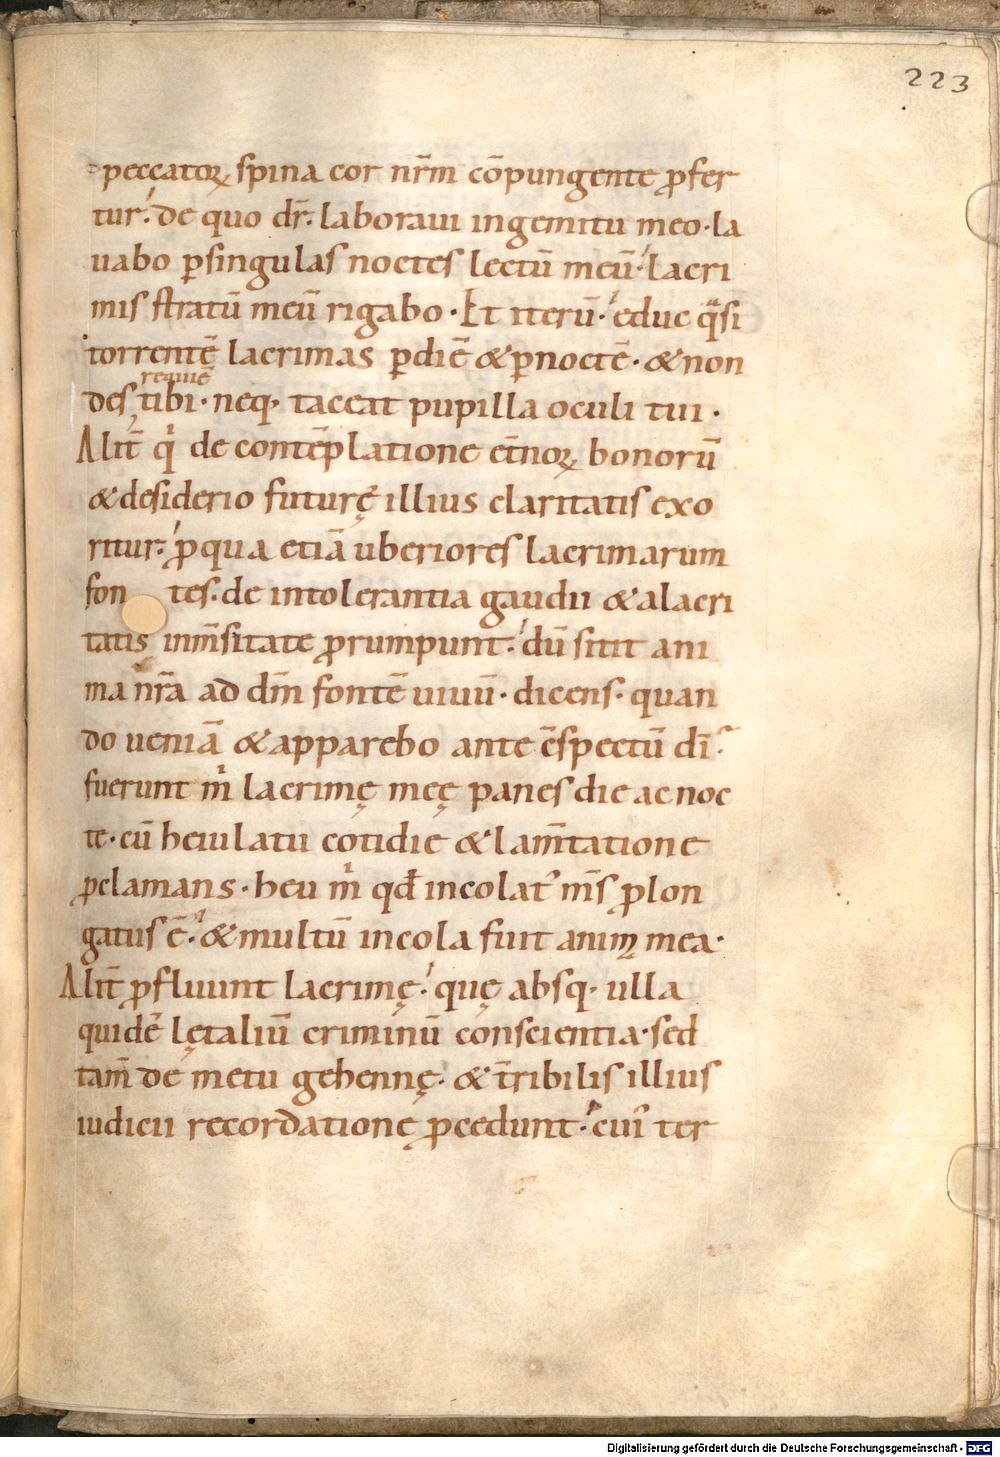 223
peccatoꝝ spina cor nr̄m cōpungente ꝓfer
tur· de quo dr̄· laboraui ingemitu meo· la
uabo ꝑsingulas noctes lectū meū· lacri
mis stratū meū rigabo· Et iterū· educ qᵃsi
torrentē lacrimas ꝑdiē &ꝑnoctē· &non
requiē
des tibi· neq· taceat pupilla oculi tui·
Alit̄ qͥ de contēplatione et̄noꝝ bonorū
&desiderio futurę illius claritatis exo
ritur· ꝓqua etiā uberiores lacrimarum
fontes· de intolerantia gaudii &alacri
tatis inm̄sitate ꝓrumpunt· dū sitit ani
ma nr̄a ad dm̄ fontē uiuū· dicens· quan
do ueniā &apparebo ante ēspectū dī·
fuerunt mͥ lacrimę meę panes die ac noc
te· cū heiulatu cotidie &lam̄tatione
ꝓclamans· heu mͥ qđ incolat᾽ m̄s ꝓlon
gatus ē· &multū incola fuit anim mea·
Alit̄ ꝓfluunt lacrimę· quę absq· ulla
quidē lętaliū criminū conscientia· sed
tam̄ de metu gehennę· &t̄ribilis illius
iudicii recordationę ꝓcedunt· cui᾽ ter
Digitalisierung gefördert durch die Deutsche Forschungsgemeinschaft - DFG